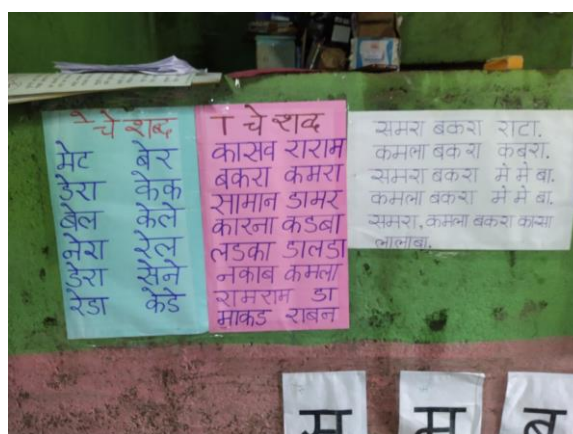 े चे शब्द
मेट बेर
डेरा केक
बेल केले
नेरा पेल
डेरा सेने
रेडा केडे
ा चे शब्द
कासव राराम
बकरा कमरा
सामान डामर
कारना कडबा
लडका डालडा
नकाब कमला
रामराम डा
माकड राबन
समरा बकरा राटा.
कमला बकरा कबरा.
समरा बकरा में में बा.
कमला बकरा में में बा.
समरा, कमला बकरा कासा
लालाबा.
स म ब